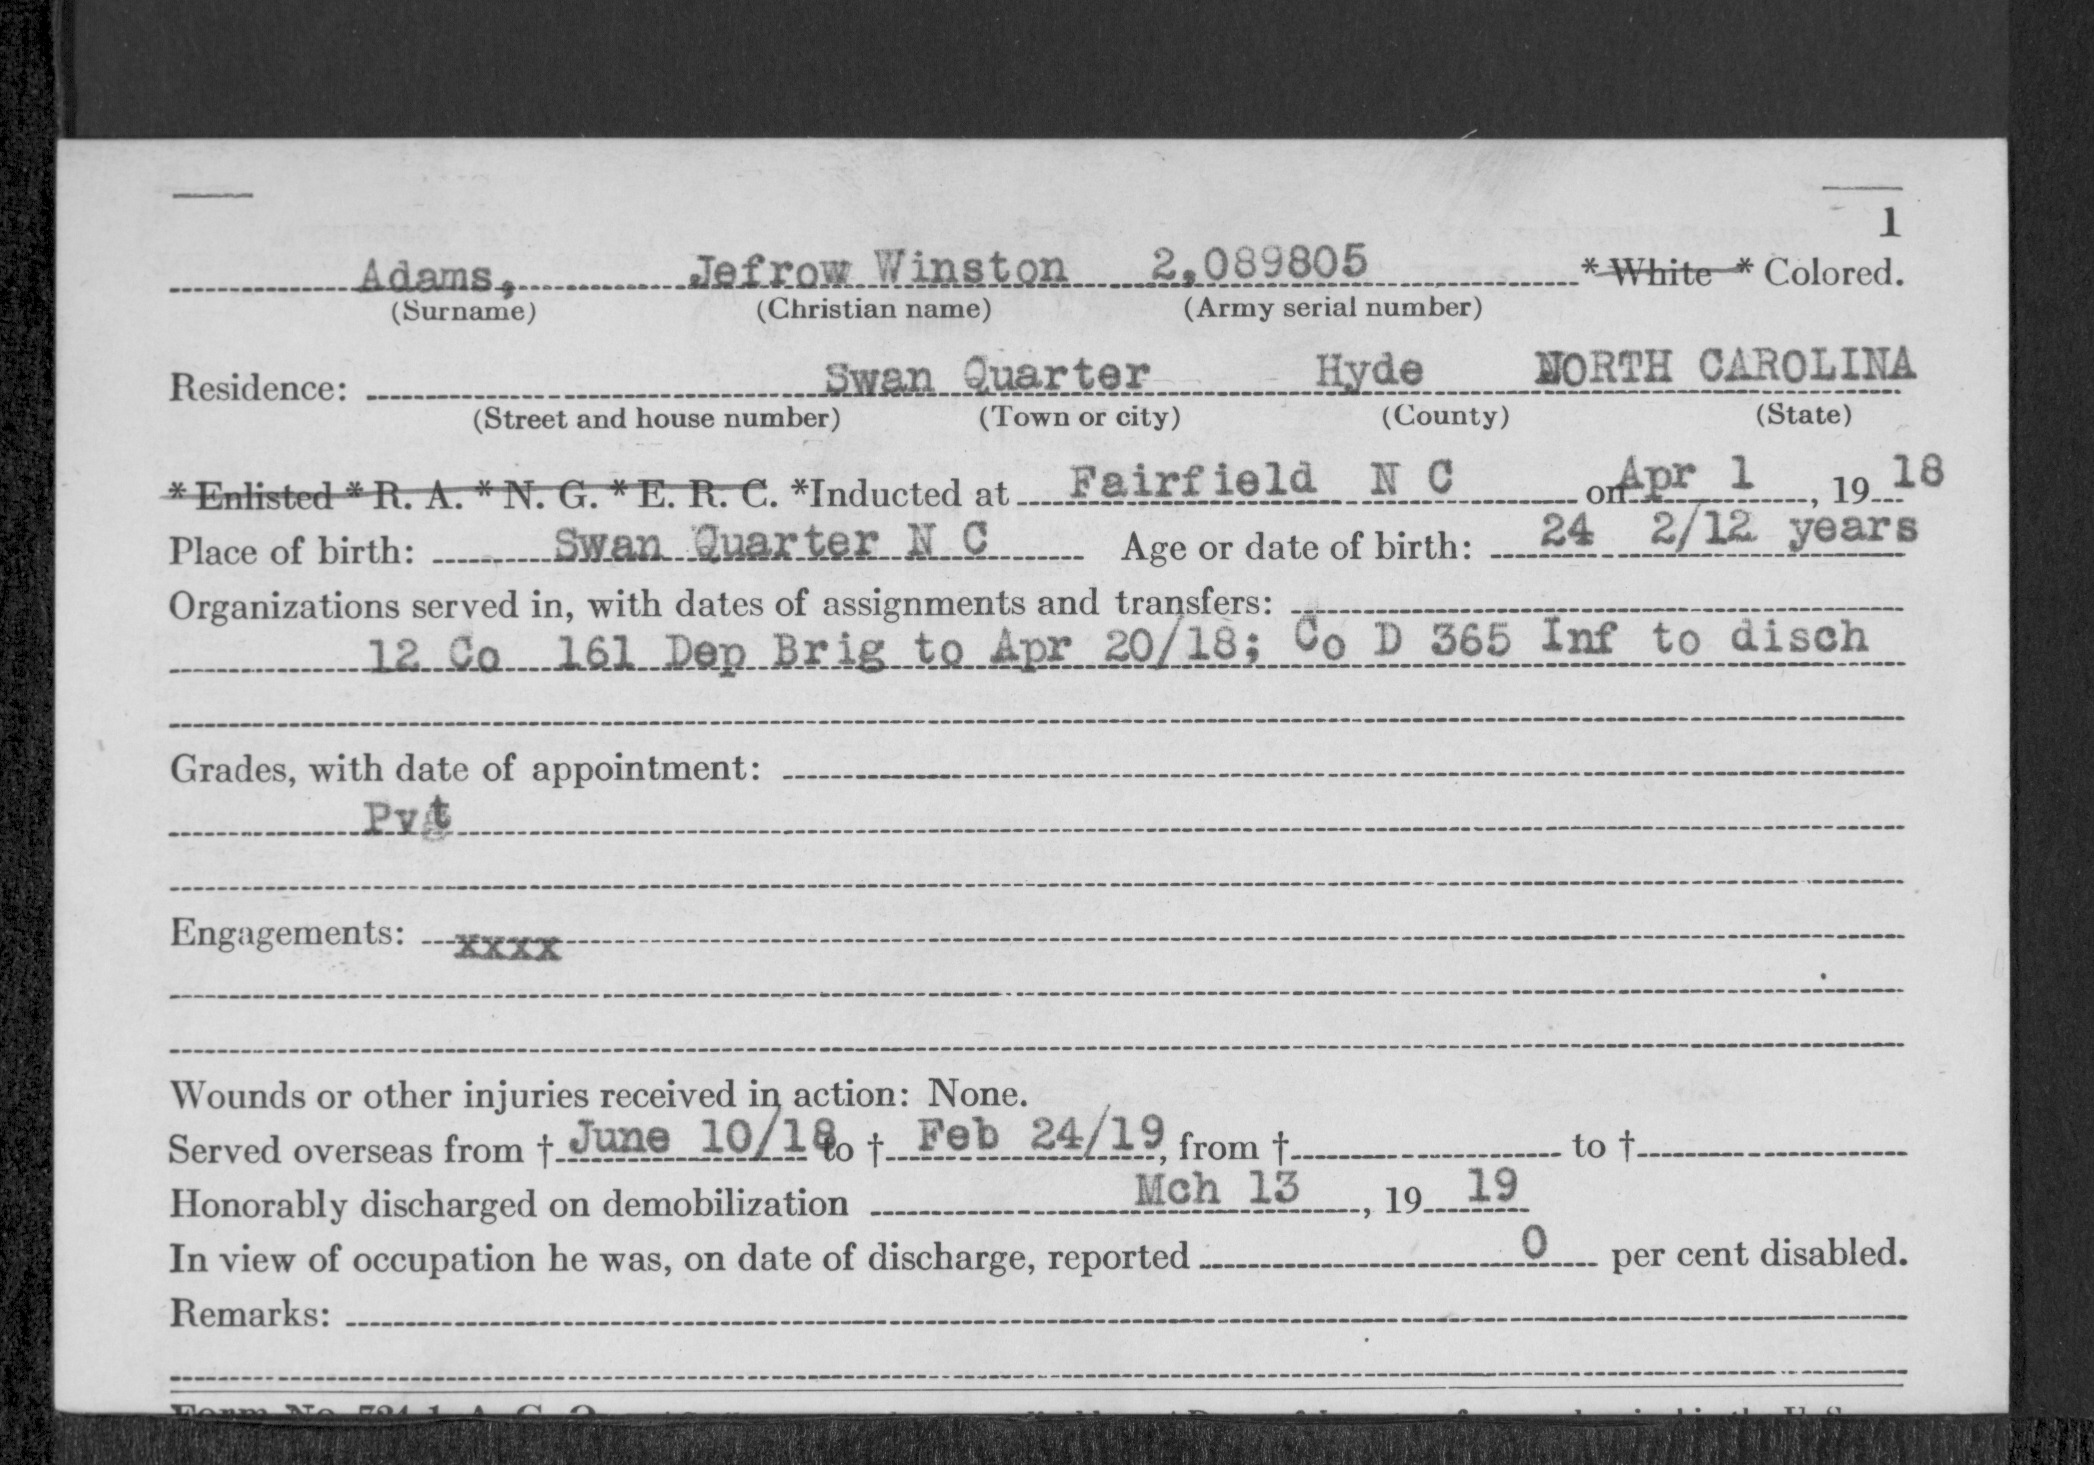 1
Adams, Jefrow Winston 2,089805 * White * Colored.
(Surname) (Christian name) (Army serial number)
Residence: Swan Quarter Hyde NORTH CAROLINA
(Street and house number) (Town or city) (County) (State)
* Enlisted * R. A. * N. G. * E. R. C. *Inducted at Fairfield N C on Apr 1, 1918
Place of birth: Swan Quarter N C Age or date of birth: 24 2/12 years
Organizations served in, with dates of assignments and transfers:
12 Co 161 Dep Brig to Apr 20/18; Co D 365 Inf to disch
Grades, with date of appointment:
Pvt
Engagements: xxxx
Wounds or other injuries received in action: None.
Served overseas from † June 10/18 to † Feb 24/19, from † to †
Honorably discharged on demobilization Mch 13, 1919
In view of occupation he was, on date of discharge, reported 0 per cent disabled.
Remarks: